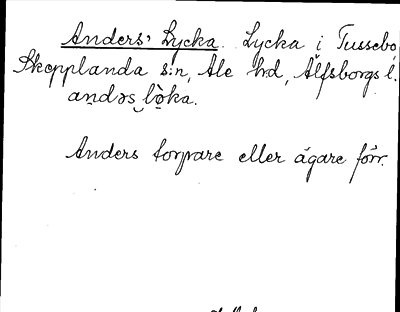 Anders' Lycka. Lycka i Tussebo,
Skepplanda s:n, Ale hrd, Älfsborgs l.
andəs lö̀ka.
Anders torpare eller ägare förr.